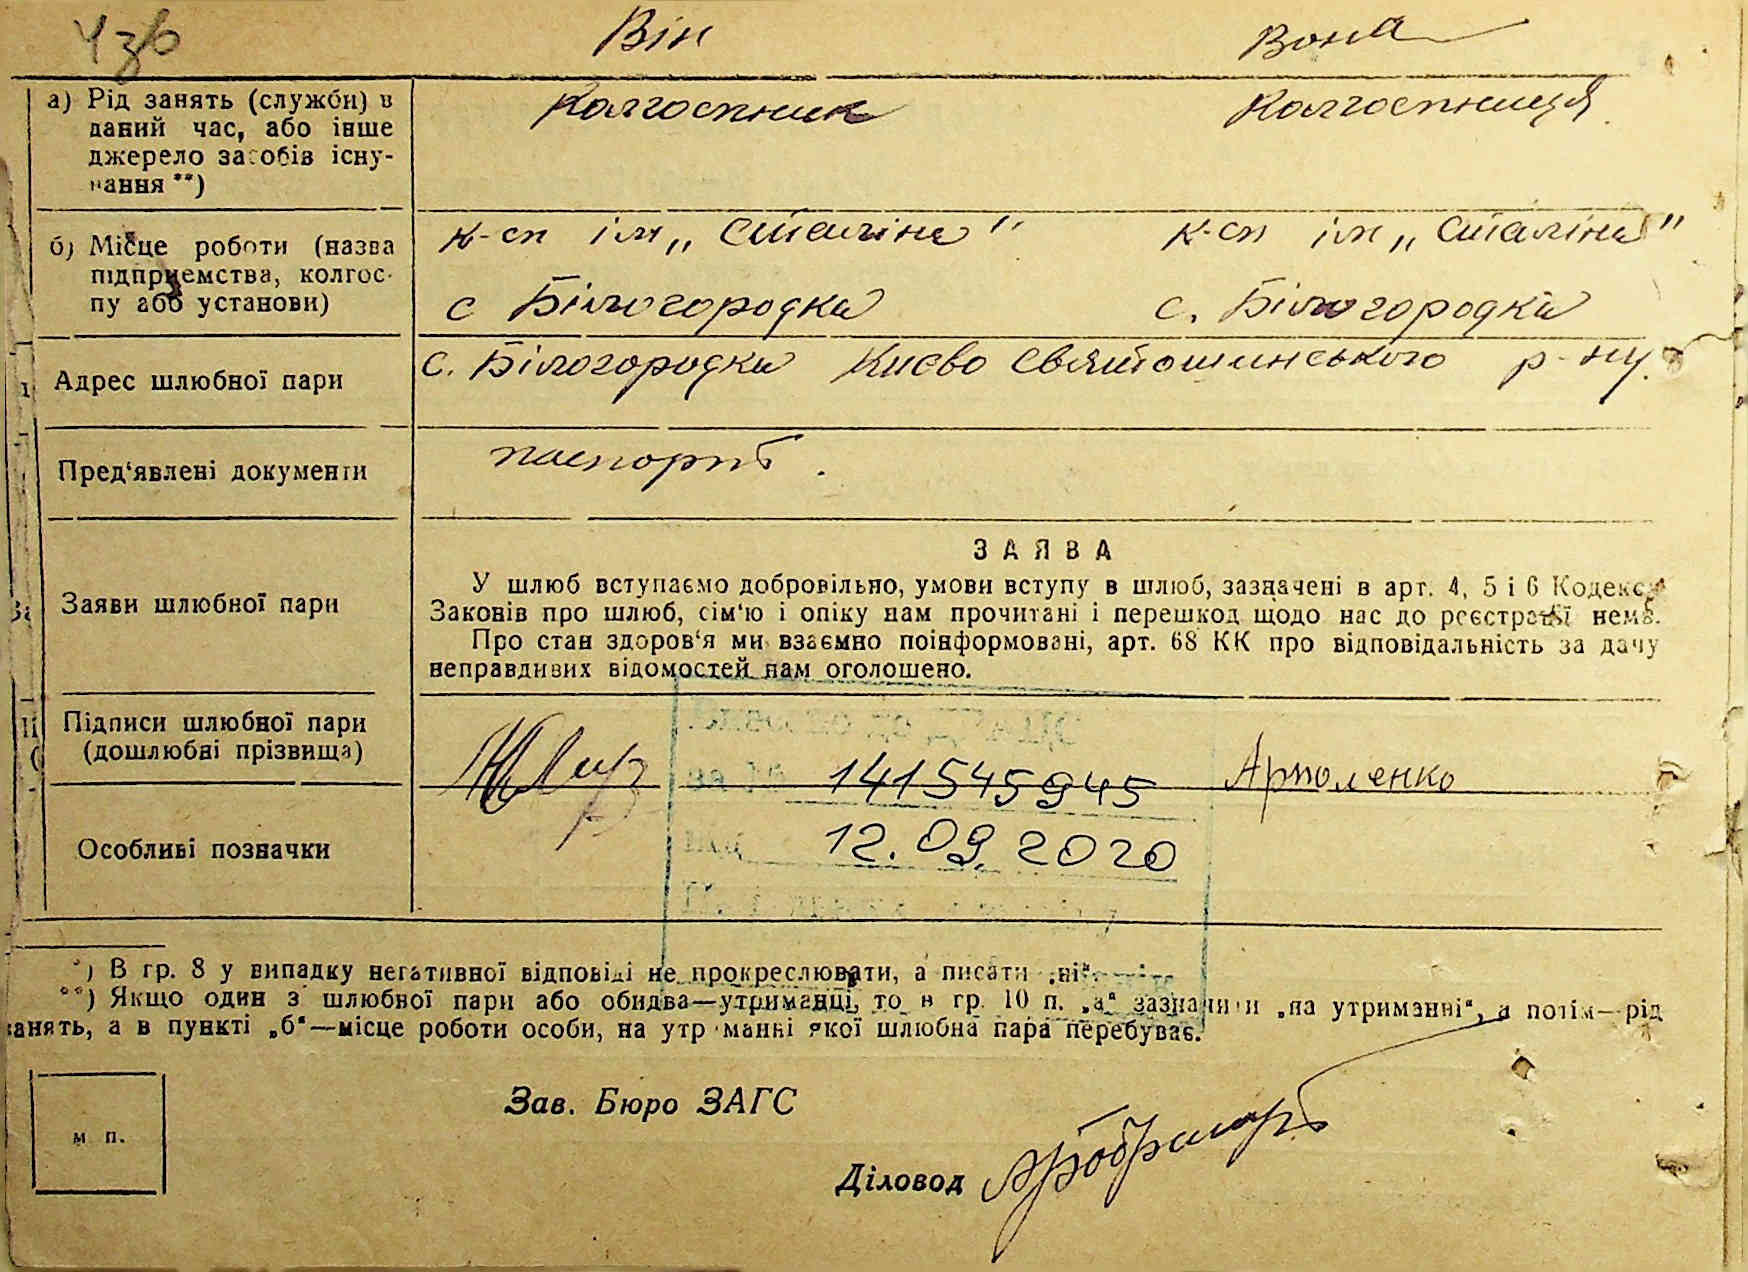 Він Вона
а) Рід занять (служби) в
даний час, або інше
джерело засобів існу-
вання **)
Колгоспник Колгоспниця
б) Місце роботи (назва
підприємства, колгос-
пу або установи)
к-сп ім „Сталіна" к-сп ім „Сталіна"
с Білогородка с. Білогородка
Адрес шлюбної пари
с. Білогородка Києво Святошинського р-ну.
Пред'явлені документи
паспорт.
Заяви шлюбної пари
ЗАЯВА
У шлюб вступаємо добровільно, умови вступу в шлюб, зазначені в арт. 4, 5 і 6 Кодексу
Законів про шлюб, сім'ю і опіку нам прочитані і перешкод щодо нас до реєстрації нема.
Про стан здоров'я ми взаємно поінформовані, арт. 68 КК про відповідальність за дачу
неправдивих відомостей нам оголошено.
Підписи шлюбної пари
(дошлюбні прізвища)
141545945
12.09.2020
Особливі позначки
*) В гр. 8 у випадку негативної відповіді не прокреслювати, а писати „ні“.
**) Якщо один з шлюбної пари або обидва—утриманці, то в гр. 10 п. „а“ зазначити „на утриманні“, а потім—рід
занять, а в пункті „б“—місце роботи особи, на утриманні якої шлюбна пара перебуває.
м п.
Зав. Бюро ЗАГС
Діловод